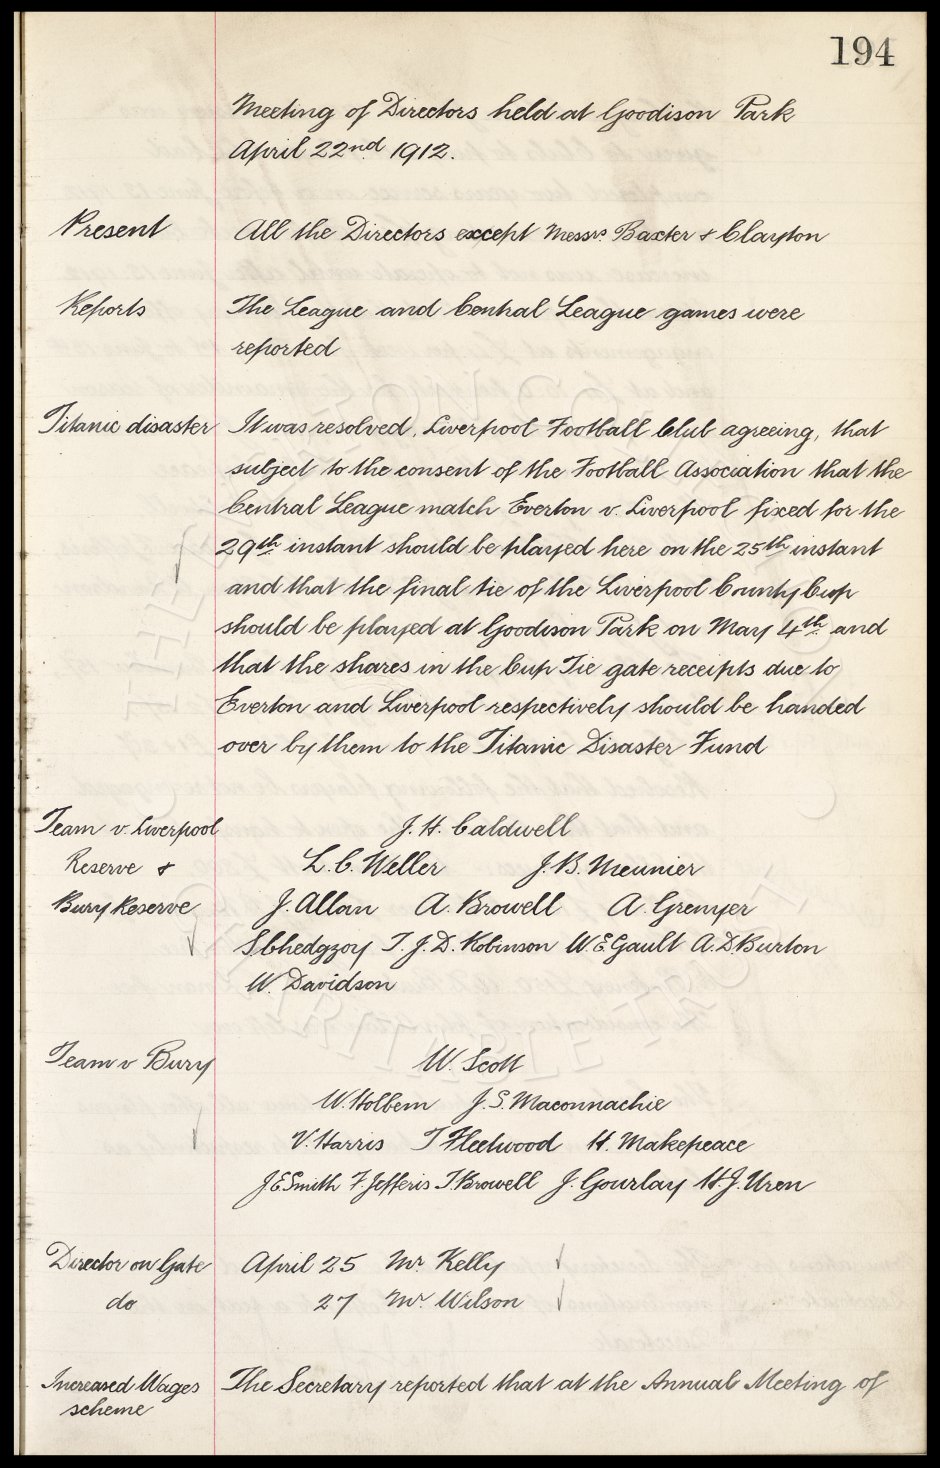 194
Meeting of Directors held at Goodison Park
April 22nd 1912.
Present All the Directors except Messrs Baxter & Clayton
Reports The League and Central League games were
reported
Titanic disaster It was resolved, Liverpool Football Club agreeing, that
subject to the consent of the Football Association that the
Central League match Everton v. Liverpool fixed for the
29th instant should be played here on the 25th instant
and that the final tie of the Liverpool County Cup
should be played at Goodison Park on May 4th and
that the shares in the Cup Tie gate receipts due to
Everton and Liverpool respectively should be handed
over by them to the Titanic Disaster Fund
Team v. Liverpool J. H. Caldwell
Reserve & L. C. Weller J. B. Meunier
Bury Reserve J. Allan A. Browell A. Grenyer
S. Chedgzoy T. J. D. Robinson W. E. Gault A. D. Burton
W. Davidson
Team v Bury W. Scott
W. Holbem J. S. Maconnachie
V. Harris T Fleetwood H. Makepeace
J E Smith F. Jefferis T. Browell J. Gourlay H. J. Uren
Director on Gate April 25 Mr. Kelly
do 27 Mr. Wilson
Increased Wages The Secretary reported that at the Annual Meeting of
scheme